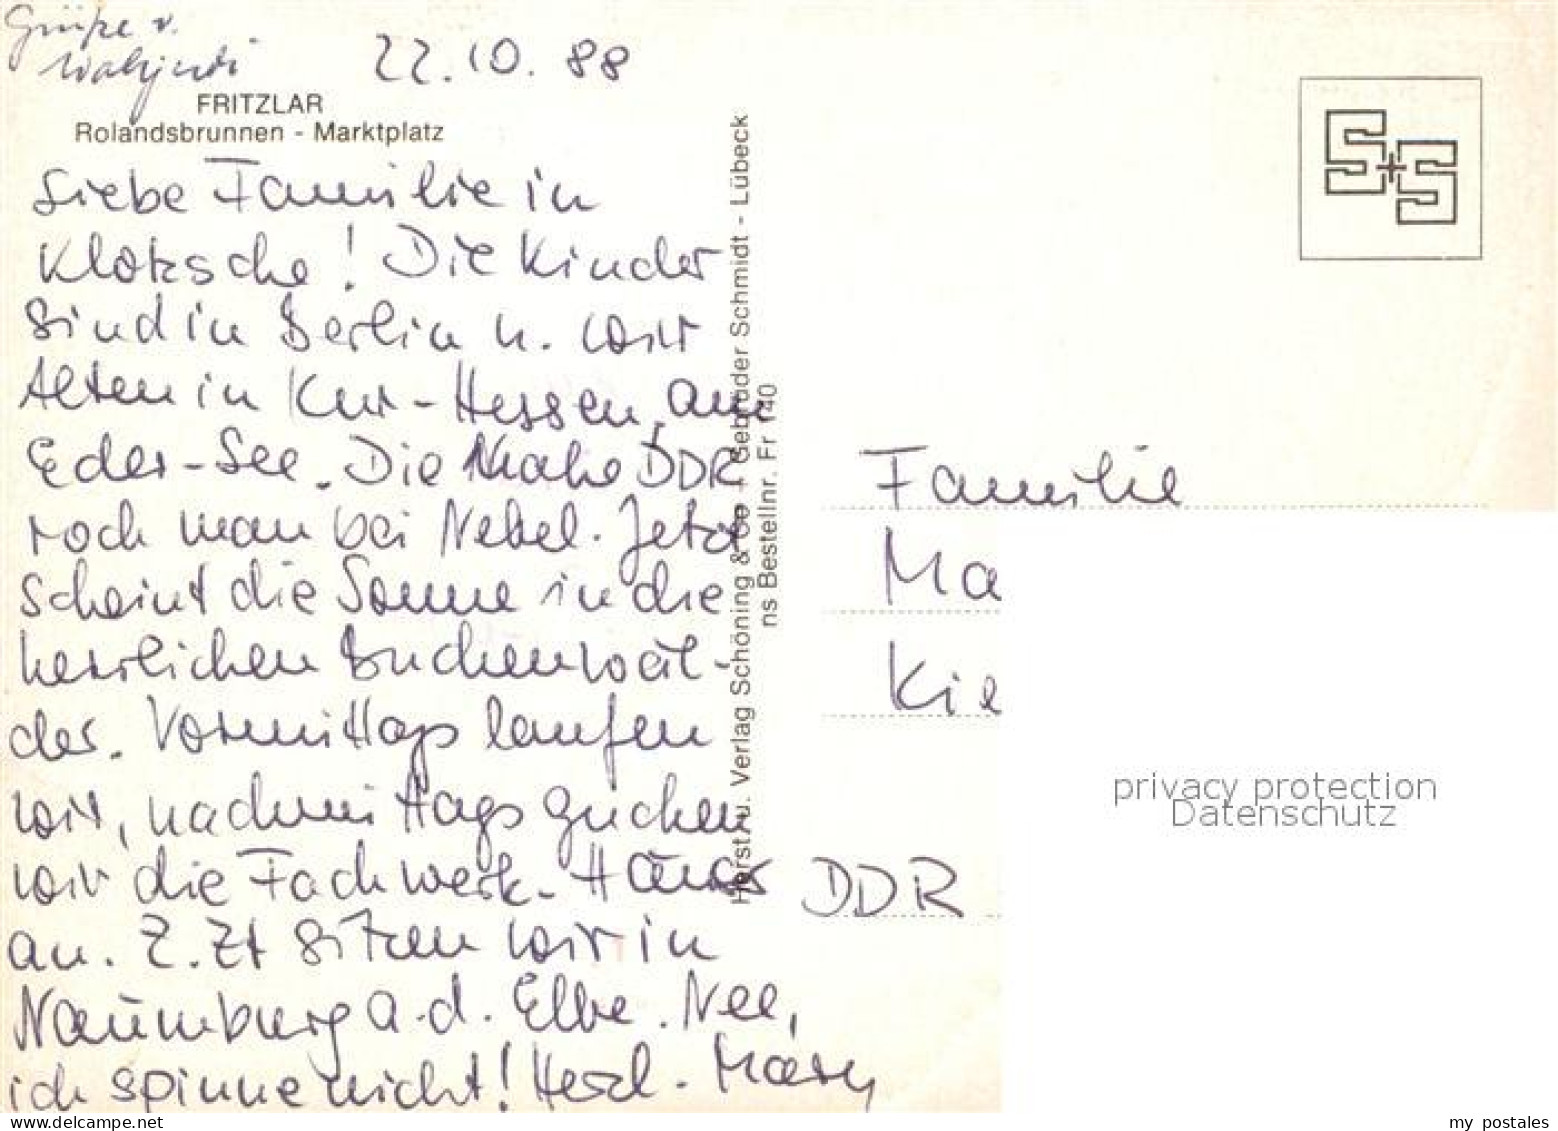 Grüße v.
22.10.88
FRITZLAR
Rolandsbrunnen - Marktplatz
Liebe Familie in
Klotzsche! Die Kinder
sind in Berlin u. wir
Alten in Kur-Hessen, am
Eder-See. Die Nahe DDR
roch man bei Nebel. Jetzt
scheint die Sonne in die
herrlichen Buchenwäl-
der. Vormittags laufen
wir, nachmittags gucken
wir die Fachwerk-Häuser
an. Z.Zt sitzen wir in
Naumburg a.d. Elbe. Nee,
ich spinne nicht! Herzl.
Horst u. Verlag Schöning & Co + Gebrüder Schmidt - Lübeck
ns Bestellnr. Fr 140
S+S
Familie
Ma
Kie
DDR
privacy protection
Datenschutz
my postales